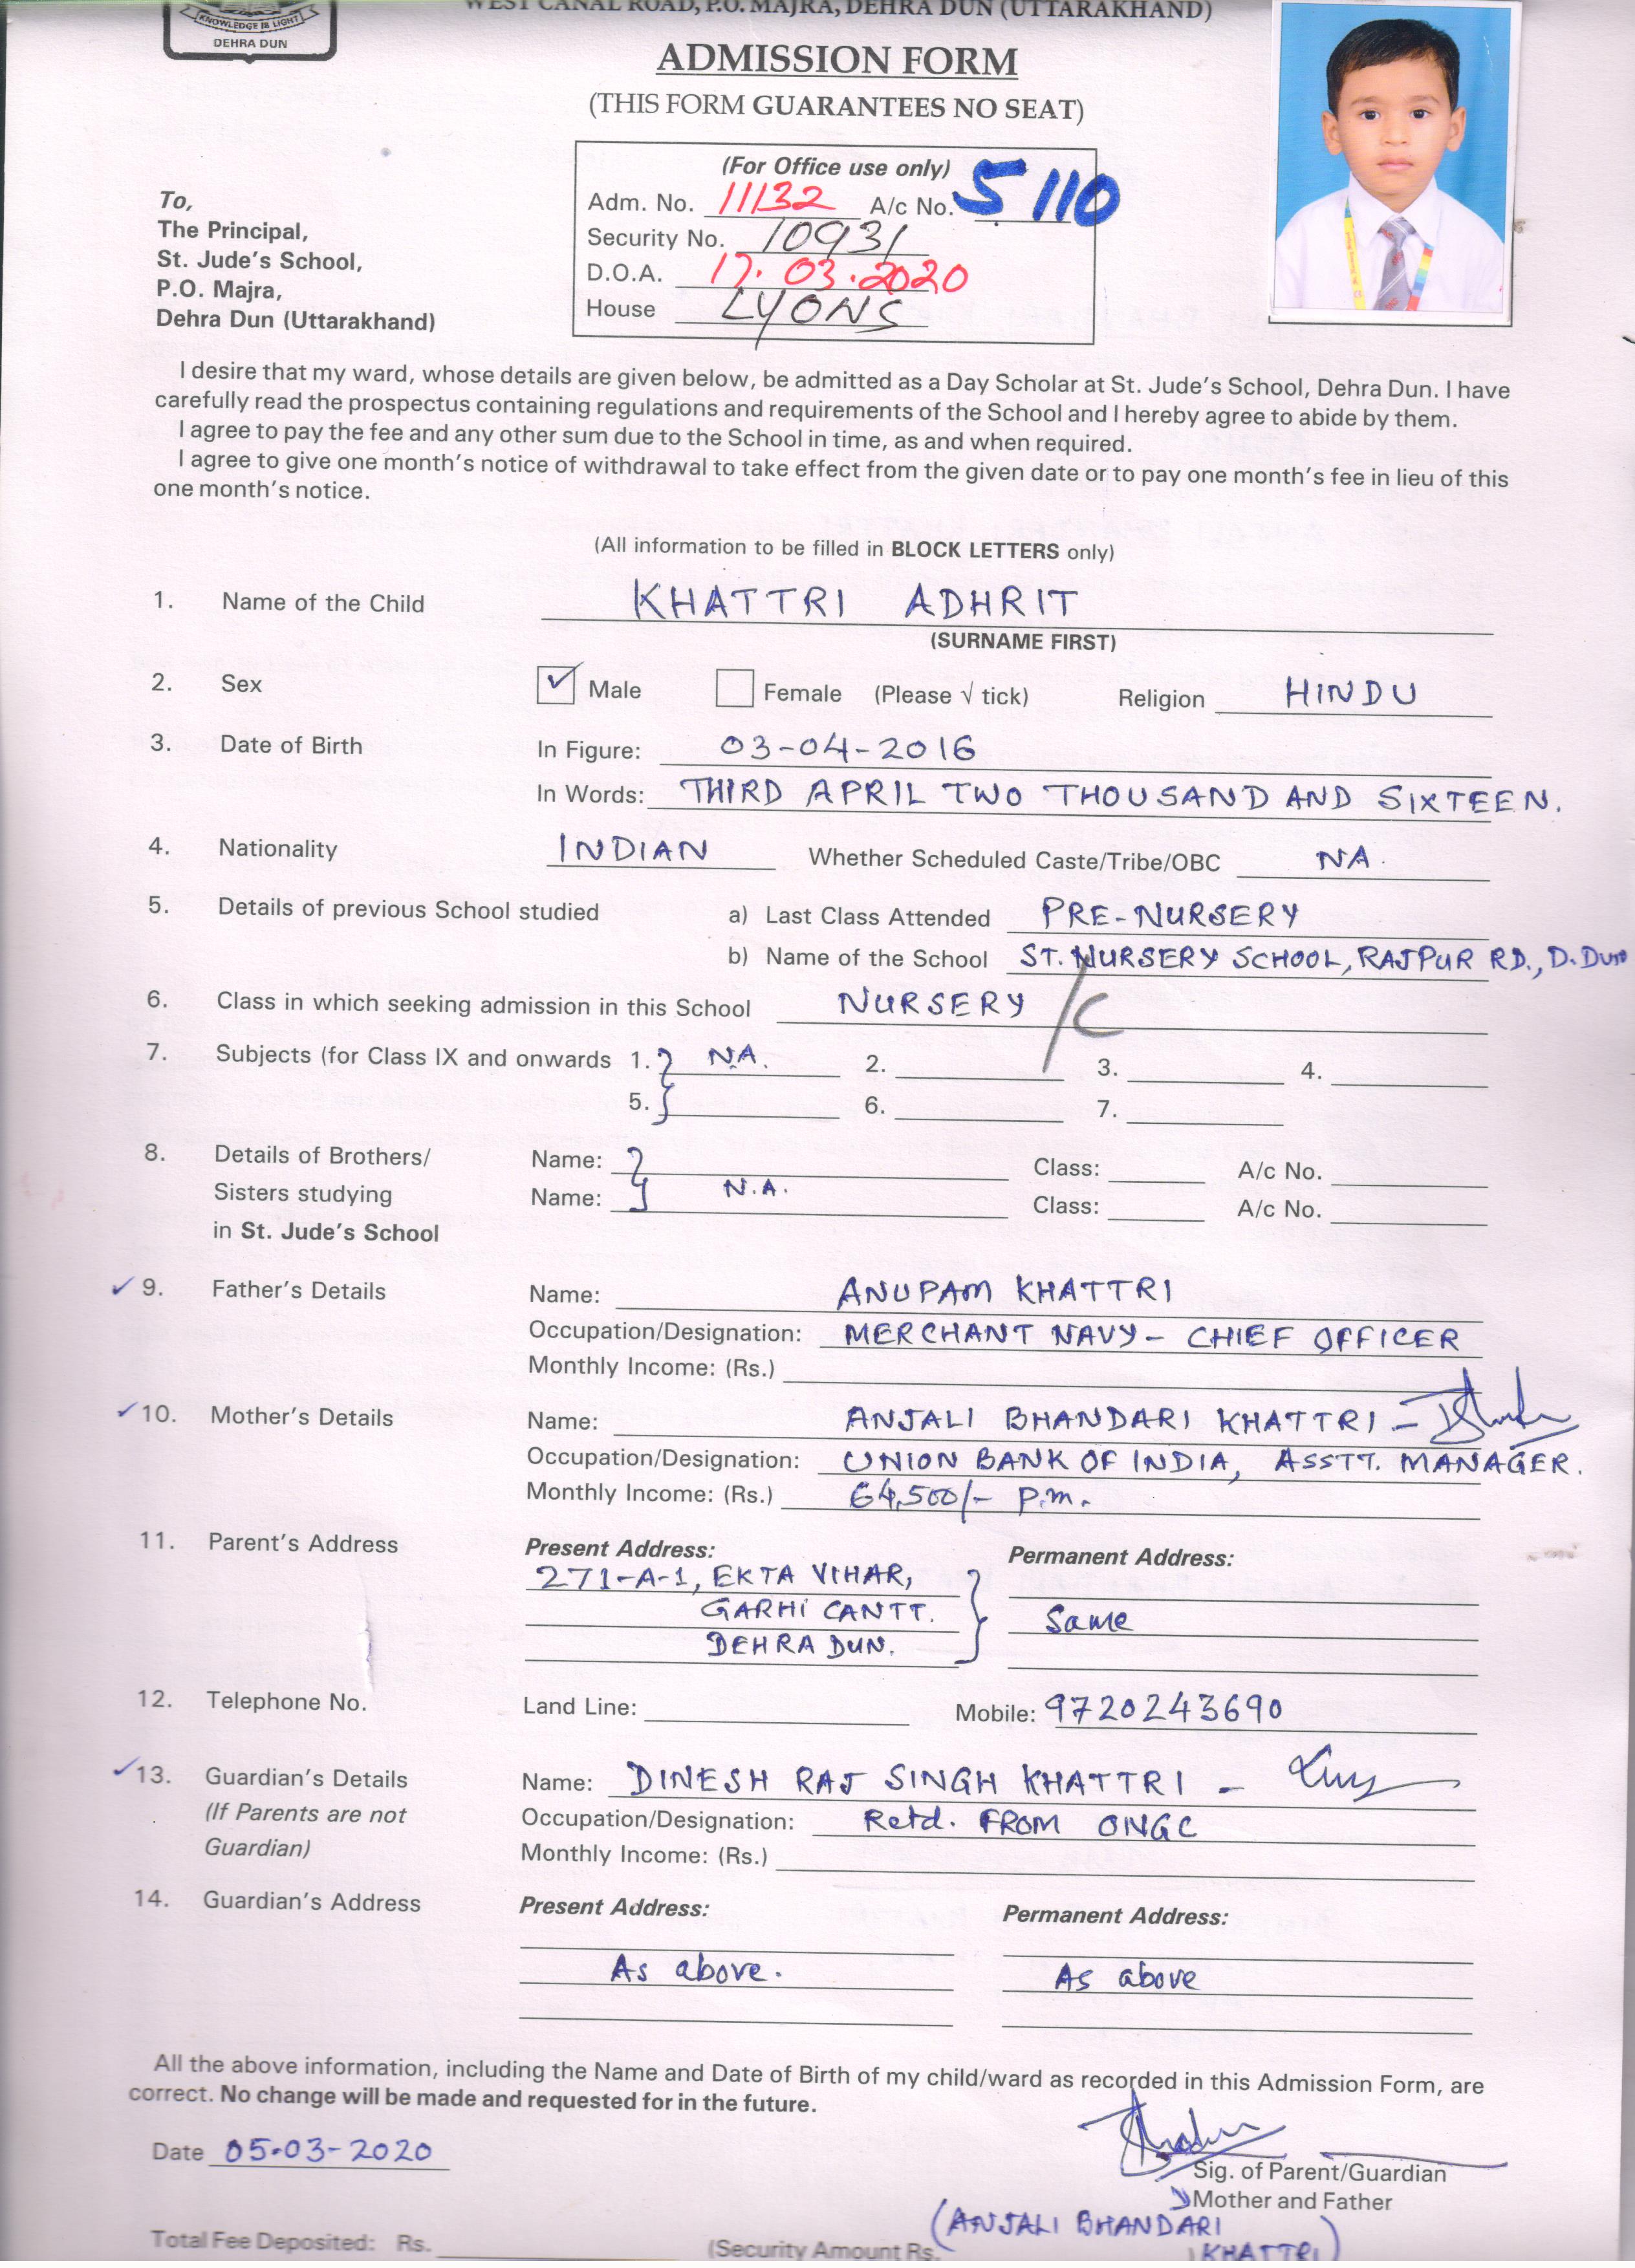 WEST CANAL ROAD, P.O. MAJRA, DEHRA DUN (UTTARAKHAND)
KNOWLEDGE IS LIGHT
DEHRA DUN
ADMISSION FORM
(THIS FORM GUARANTEES NO SEAT)
(For Office use only)
Adm. No. 11132 A/c No. 5110
Security No. 10931
D.O.A. 17.03.2020
House LYONS
To,
The Principal,
St. Jude's School,
P.O. Majra,
Dehra Dun (Uttarakhand)
I desire that my ward, whose details are given below, be admitted as a Day Scholar at St. Jude's School, Dehra Dun. I have
carefully read the prospectus containing regulations and requirements of the School and I hereby agree to abide by them.
I agree to pay the fee and any other sum due to the School in time, as and when required.
I agree to give one month's notice of withdrawal to take effect from the given date or to pay one month's fee in lieu of this
one month's notice.
(All information to be filled in BLOCK LETTERS only)
1. Name of the Child KHATTRI ADHRIT
(SURNAME FIRST)
2. Sex ✓ Male Female (Please √ tick) Religion HINDU
3. Date of Birth In Figure: 03-04-2016
In Words: THIRD APRIL TWO THOUSAND AND SIXTEEN.
4. Nationality INDIAN Whether Scheduled Caste/Tribe/OBC NA.
5. Details of previous School studied a) Last Class Attended PRE-NURSERY
b) Name of the School ST. NURSERY SCHOOL, RAJPUR RD., D.Dun
6. Class in which seeking admission in this School NURSERY /C
7. Subjects (for Class IX and onwards 1. NA. 2. 3. 4.
5. 6. 7.
8. Details of Brothers/ Name: Class: A/c No.
Sisters studying Name: N.A. Class: A/c No.
in St. Jude's School
✓ 9. Father's Details Name: ANUPAM KHATTRI
Occupation/Designation: MERCHANT NAVY - CHIEF OFFICER
Monthly Income: (Rs.)
✓ 10. Mother's Details Name: ANJALI BHANDARI KHATTRI -
Occupation/Designation: UNION BANK OF INDIA, ASSTT. MANAGER.
Monthly Income: (Rs.) 64,500/- p.m.
11. Parent's Address Present Address: Permanent Address:
271-A-1, EKTA VIHAR,
GARHI CANTT. Same
DEHRA DUN.
12. Telephone No. Land Line: Mobile: 9720243690
✓ 13. Guardian's Details Name: DINESH RAJ SINGH KHATTRI -
(If Parents are not Occupation/Designation: Retd. FROM ONGC
Guardian) Monthly Income: (Rs.)
14. Guardian's Address Present Address: Permanent Address:
As above. As above
All the above information, including the Name and Date of Birth of my child/ward as recorded in this Admission Form, are
correct. No change will be made and requested for in the future.
Date 05-03-2020
Sig. of Parent/Guardian
Mother and Father
(ANJALI BHANDARI
KHATTRI)
Total Fee Deposited: Rs. (Security Amount Rs.